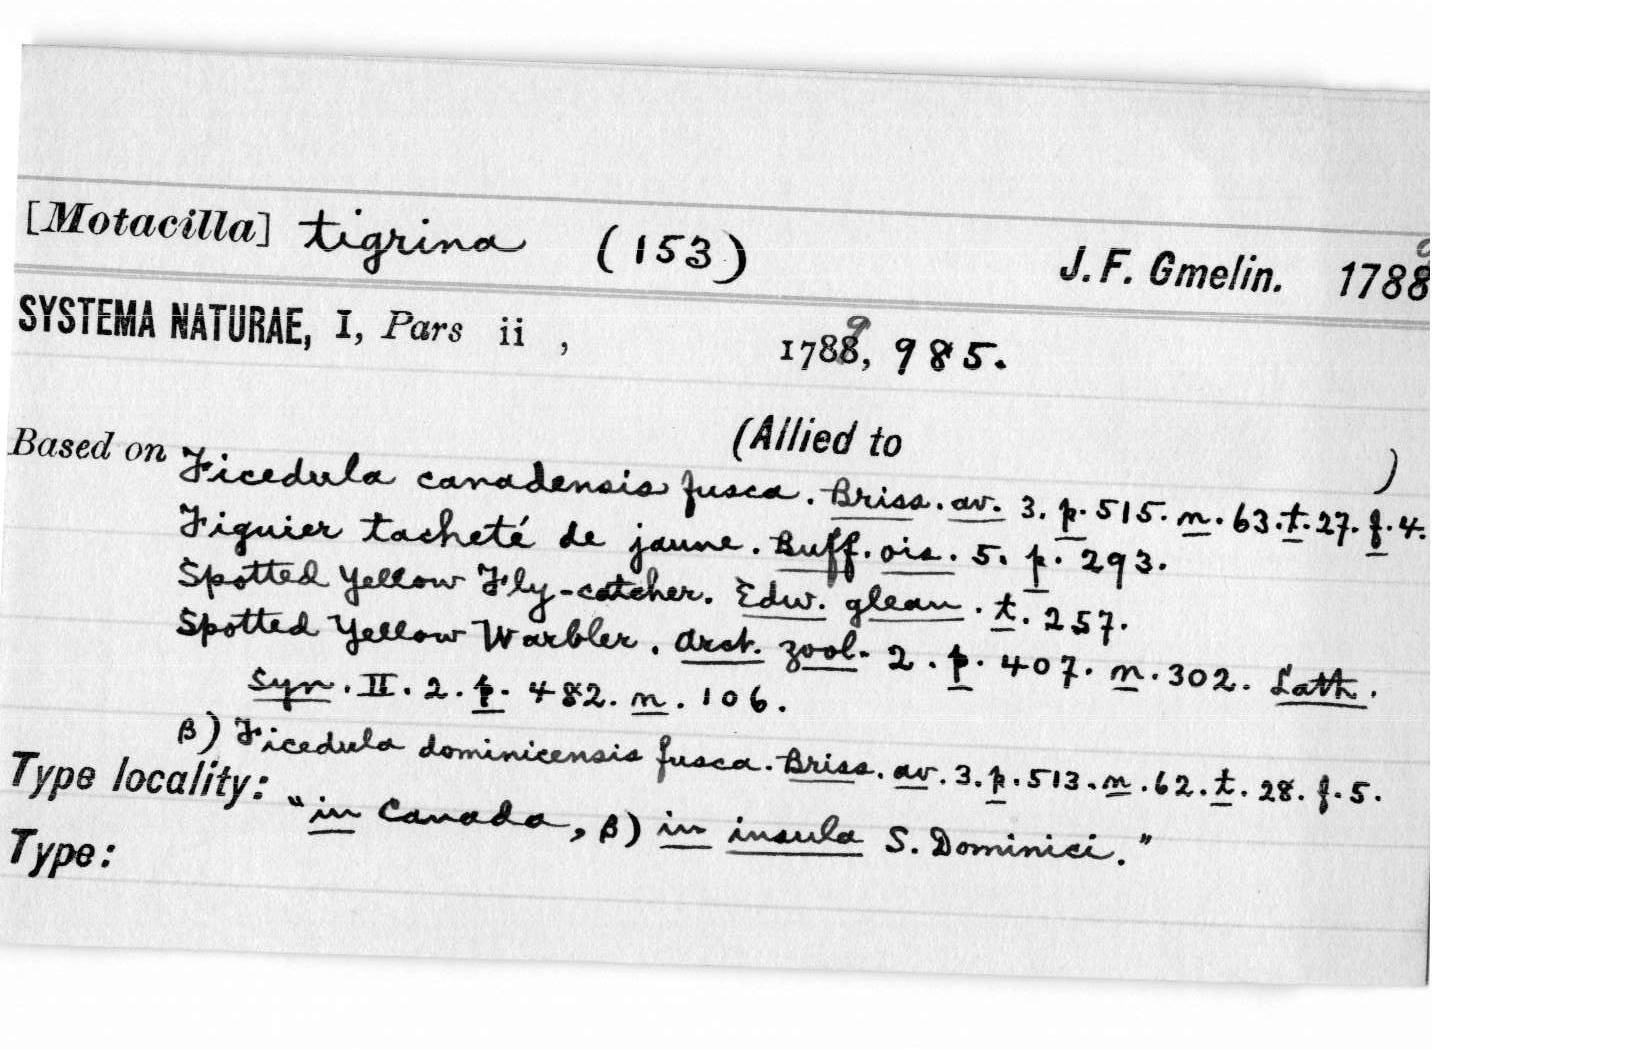 [Motacilla] tigrina (153) J. F. Gmelin. 1788 9
SYSTEMA NATURAE, I, Pars ii , 1788 9, 985.
(Allied to )
Based on Ficedula canadensis fusca. Briss. av. 3. p. 515. n. 63. t. 27. f. 4.
Figuier tacheté de jaune. Buff. ois. 5. p. 293.
Spotted Yellow Fly-catcher. Edw. glean. t. 257.
Spotted Yellow Warbler. Arct. zool. 2. p. 407. n. 302. Lath.
Syn. II. 2. p. 482. n. 106.
β) Ficedula dominicensis fusca. Briss. av. 3. p. 513. n. 62. t. 28. f. 5.
Type locality: "in Canada, β) in insula S. Dominici."
Type: